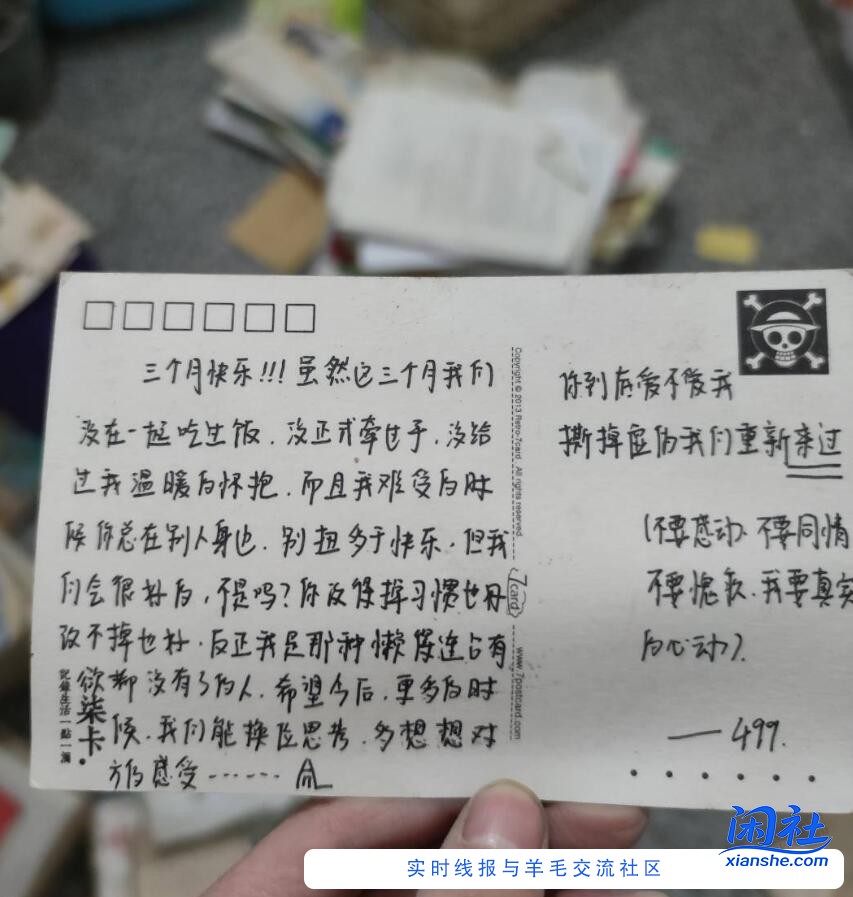 三个月快乐!!! 虽然这三个月我们
没在一起吃过饭，没正式牵过手，没给
过我温暖的怀抱，而且我难受的时
候你总在别人身边，别扭多于快乐，但我
们会很好的，不是吗？你改得掉习惯也好
改不掉也好，反正我是那种懒得连占有
欲都没有了的人，希望今后，更多的时
候，我们能换位思考，多想想对
方的感受……
記錄生活一點一滴
柒卡
Copyright © 2013 Retro-7card. All rights reserved.
7card
www.7postcard.com
你到底爱不爱我
撕掉虚伪我们重新来过
(不要感动、不要同情
不要愧疚，我要真实
的心动)。
——499.
闲社
xianshe.com
实时线报与羊毛交流社区